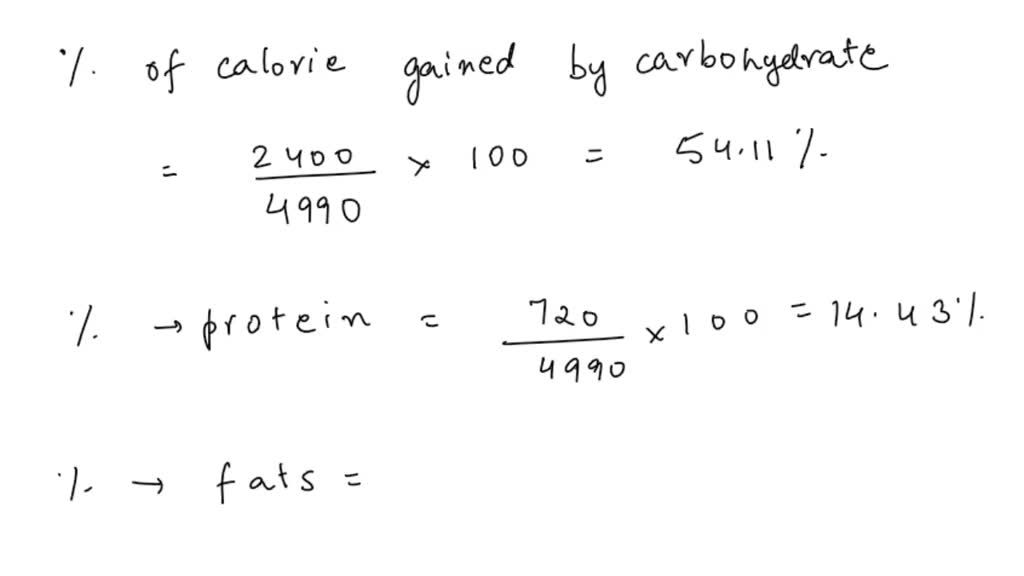 % of calorie gained by carbohydrate
= 2400/4990 × 100 = 54.11 %
% → protein = 720/4990 × 100 = 14.43%
% → fats =